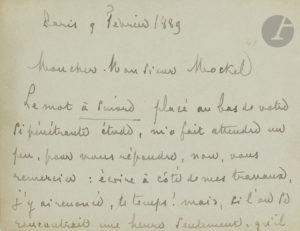 Paris 9 Février 1889
Mon cher Monsieur Mockel
Le mot à suivre placé au bas de votre
si pénétrante étude, m'a fait attendre un
peu, pour vous répondre, non, vous
remercier : écrire à côté de mes travaux,
j'y ai renoncé, le temps ! mais, si l'on se
rencontrait une heure seulement, qu'il